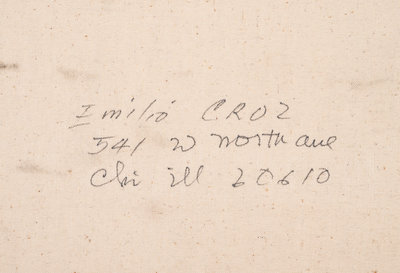 Imilió CROZ
541 W North ave
Chi ill 60610